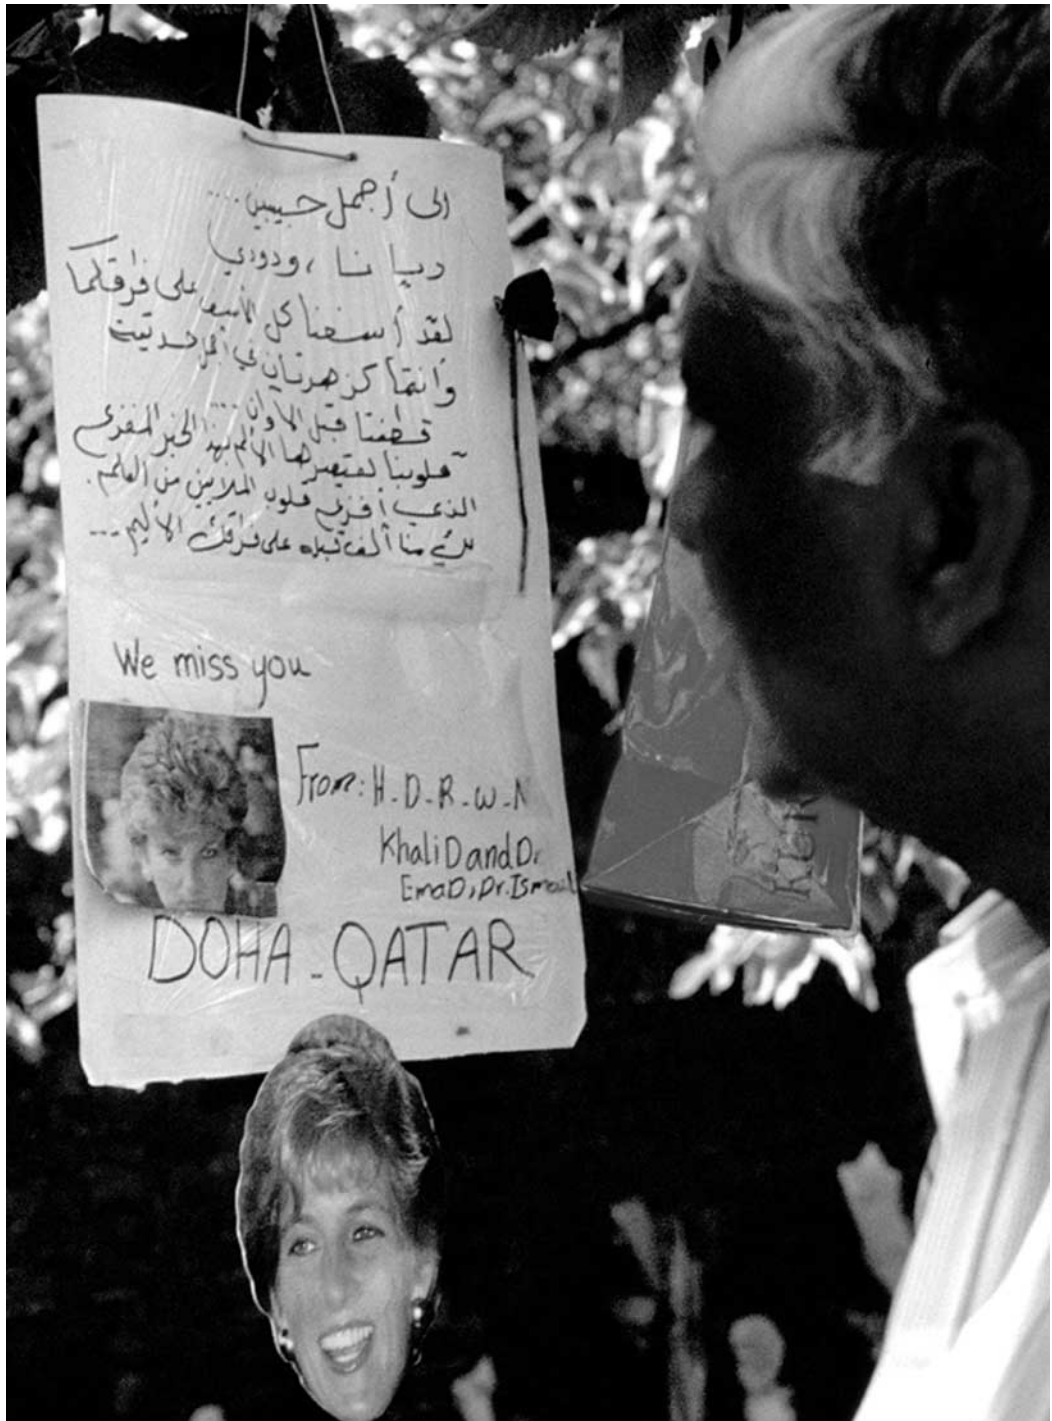 الى أجمل حبيبين....
ديانا ، ودودي
لقد أسفنا كل الأسف على فراقكما
وأنتما كزهرتان في أجمل حديقة
قطفتا قبل الأوان...
قلوبنا الألم بهذا الخبر المفزع
الذي أفزع قلوب الملايين من العالم.
منا ألف قبله على فراقك الأليم...
We miss you
From: H-D-R-W-N
KhaliD and Dr
EmaD, Dr. Ismail
DOHA - QATAR